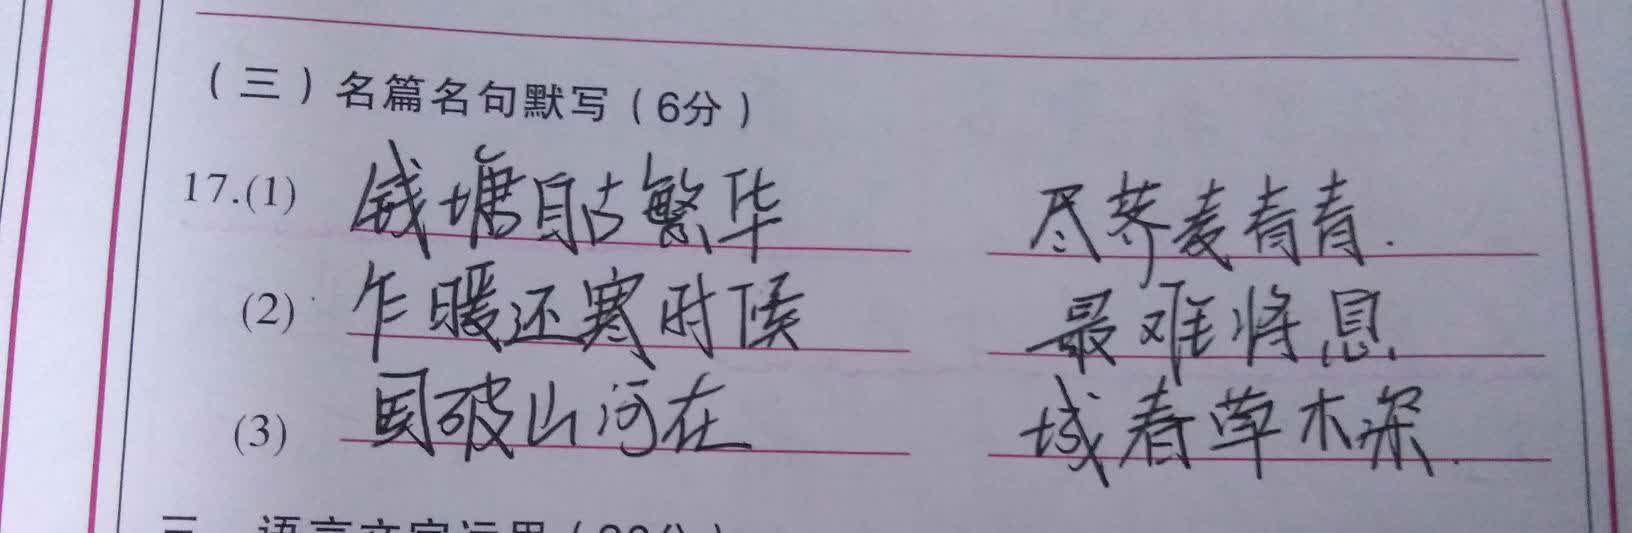 （三）名篇名句默写（6分）
17.(1) 钱塘自古繁华 尽荠麦青青.
(2) 乍暖还寒时候 最难将息.
(3) 国破山河在 城春草木深.
三 语言文字运用（20分）